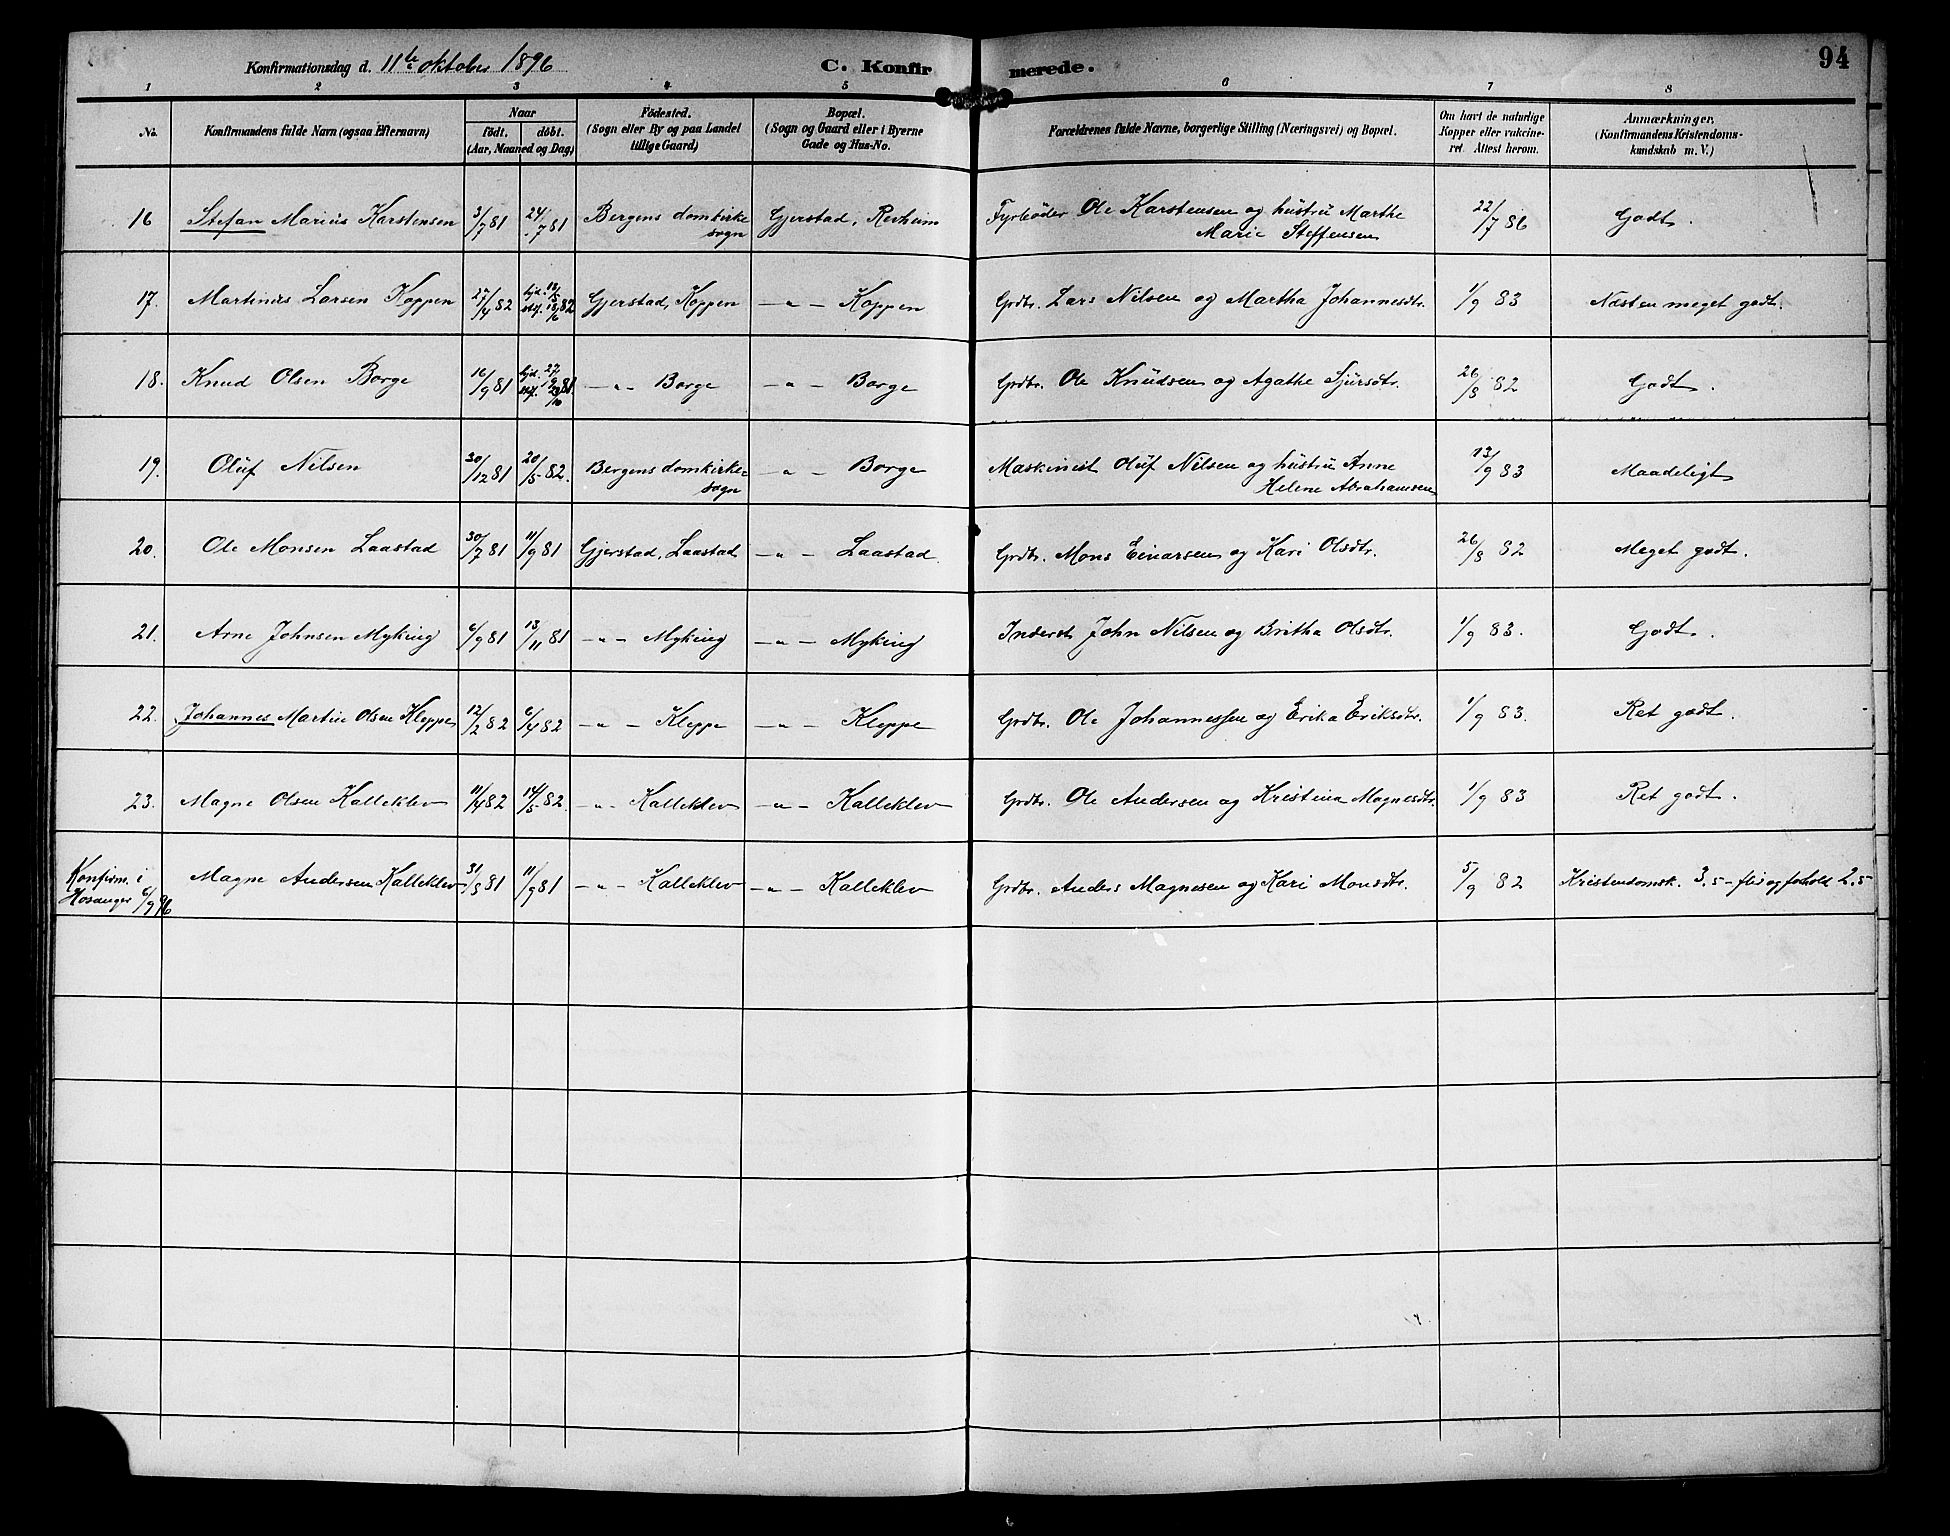 Konfirmationsdag d. 11te oktober 1896
C. Konfirmerede.
94
1 2 3 4 5 6 7 8
No.
Konfirmandens fulde Navn (ogsaa Efternavn)
Naar
födt. döbt.
(Aar, Maaned og Dag)
Födested.
(Sogn eller By og paa Landet
tillige Gaard)
Bopæl.
(Sogn og Gaard eller i Byerne
Gade og Hus-No.
Forældrenes fulde Navne, borgerlige Stilling (Næringsvei) og Bopæl.
Om havt de naturlige
Kopper eller vakcine-
ret. Attest herom.
Anmærkninger.
(Konfirmandens Kristendoms-
kundskab m. V.)
16 Stefan Marius Karstensen 3/7 81 24/7 81 Bergens domkirke Gjerstad, Revheim Fyrböder Ole Karstensen og hustru Marthe 22/7 86 Godt.
sogn Marie Steffensen
17. Martinus Larsen Koppen 27/4 82 Gjerstad, Koppen —„— Koppen Grdbr. Lars Nilsen og Martha Johannesdtr. 1/9 83 Næsten meget godt.
18. Knud Olsen Borge 16/9 81 —„— Borge —„— Borge Grdbr. Ole Knudsen og Agathe Sjursdtr. 26/8 82 Godt.
19. Oluf Nilsen 30/12 81 20/5 82. Bergens domkirke- —„— Borge Maskinist Oluf Nilsen og hustru Anne 13/9 83 Maadeligt
sogn Helene Abrahamsen
20. Ole Monsen Laastad 30/7 81 11/9 81 Gjerstad, Laastad —„— Laastad. Grdbr. Mons Einarsen og Kari Olsdtr. 26/8 82 Meget godt.
21. Arne Johnsen Myking 6/9 81 13/11 81 —„— Myking —„— Myking Inderst John Nilsen og Britha Olsdtr. 1/9 83. Godt.
22. Johannes Martin Olsen Kleppe 12/2 82 6/4 82 —„— Kleppe —„— Kleppe Grdbr. Ole Johannessen og Erika Eriksdtr. 1/9 83. Ret godt.
23. Magne Olsen Kalleklev 11/4 82 14/5 82. —„— Kalleklev —„— Kalleklev Grdbr. Ole Andersen og Kristina Magnesdtr. 1/9 83 Ret godt.
Konfirm. i Magne Andersen Kalleklev 31/8 81 11/9 81 —„— Kalleklev —„— Kalleklev Grdbr. Anders Magnesen og Kari Monsdtr. 5/9 82 Kristendomsk. 3.5 – flid og forhold 2.5
Hosanger 6/9 96